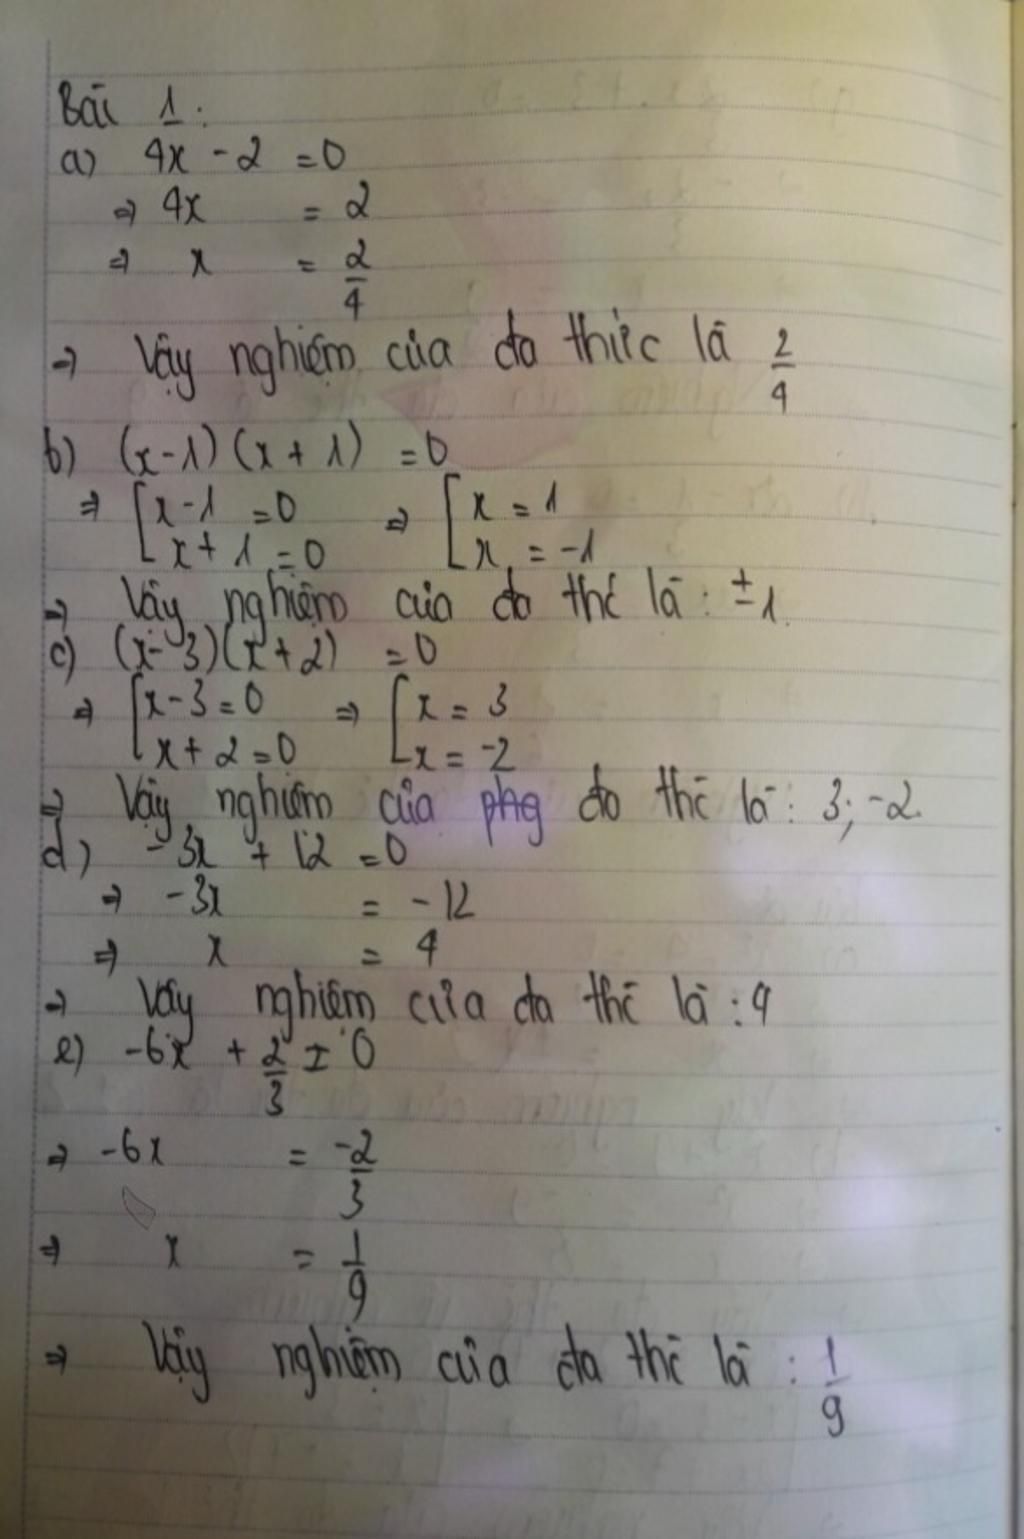 Bài 1:
a) 4x - 2 = 0
⇒ 4x = 2
⇒ x = 2/4
⇒ Vậy nghiệm của đa thức là 2/4
b) (x-1)(x+1) = 0
⇒ [x-1 = 0 ⇒ [x = 1
x+1 = 0 x = -1
⇒ Vậy nghiệm của đa thć là: ±1.
c) (x-3)(x+2) = 0
⇒ [x-3 = 0 ⇒ [x = 3
x+2 = 0 x = -2
⇒ Vậy nghiệm của phg đa thc là: 3; -2.
d) -3x + 12 = 0
⇒ -3x = -12
⇒ x = 4
⇒ Vậy nghiệm của đa thc là: 4
e) -6x + 2/3 = 0
⇒ -6x = -2/3
⇒ x = 1/9
⇒ Vậy nghiệm của đa thc là: 1/9